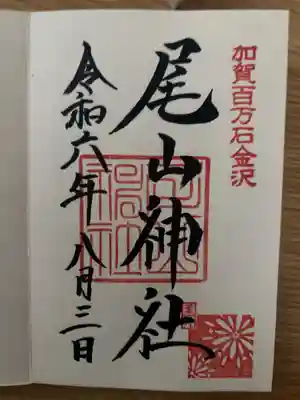 加賀百万石金沢
尾山神社
令和六年 八月三日